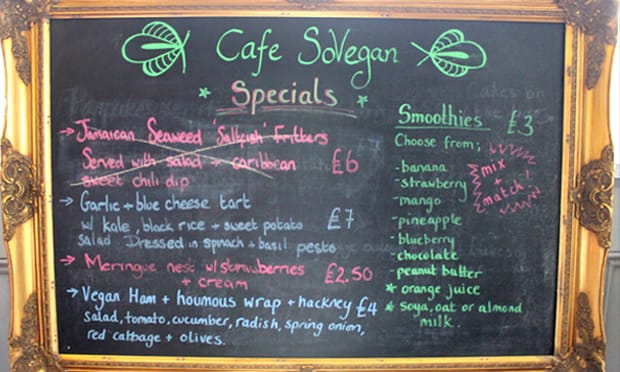 Cafe SoVegan
Specials
→ Jamaican Seaweed 'Saltfish' Fritters
Served with salad + caribbean £6
sweet chili dip
→ Garlic + blue cheese tart
w/ kale, black rice + sweet potato £7
salad Dressed in spinach + basil pesto
→ Meringue nest w/ strawberries £2.50
+ cream
→ Vegan Ham + houmous wrap + hackney £4
salad, tomato, cucumber, radish, spring onion,
red cabbage + olives.
Smoothies £3
Choose from;
- banana
- strawberry
- mango
- pineapple
- blueberry
- chocolate
- peanut butter
* orange juice
* soya, oat or almond
milk.
mix
+
match!
Cakes on